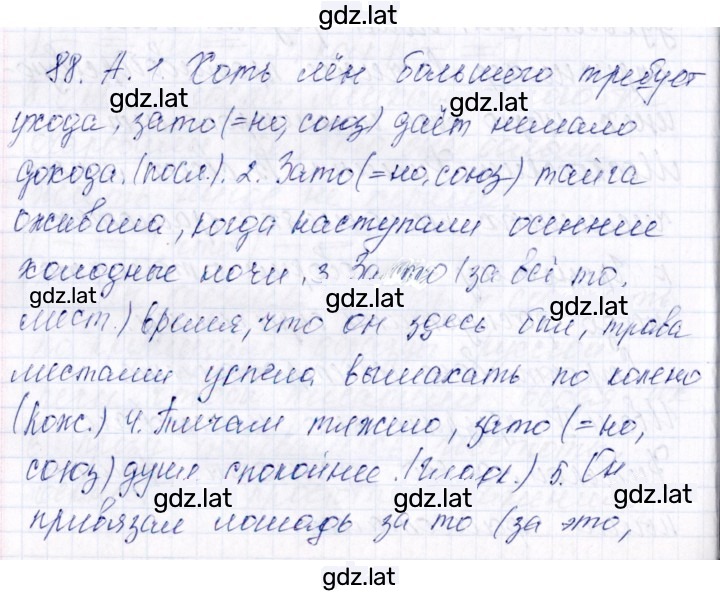 gdz.lat
88. А. 1. Хоть лён большого требует
gdz.lat gdz.lat gdz.lat
ухода, зато (=но, союз) даёт немало
дохода. (посл.). 2. Зато (=но, союз) тайга
gdz.lat gdz.lat
оживала, когда наступали осенние
холодные ночи. 3. За то (за всё то,
gdz.lat gdz.lat gdz.lat
мест.) время, что он здесь был, трава
местами успела вымахать по колено
gdz.lat gdz.lat
(Кож.) 4. Плечам тяжело, зато (=но,
союз) душе спокойнее. (Гладк.) 5. Он
gdz.lat gdz.lat gdz.lat
привязал лошадь за то (за это,
gdz.lat